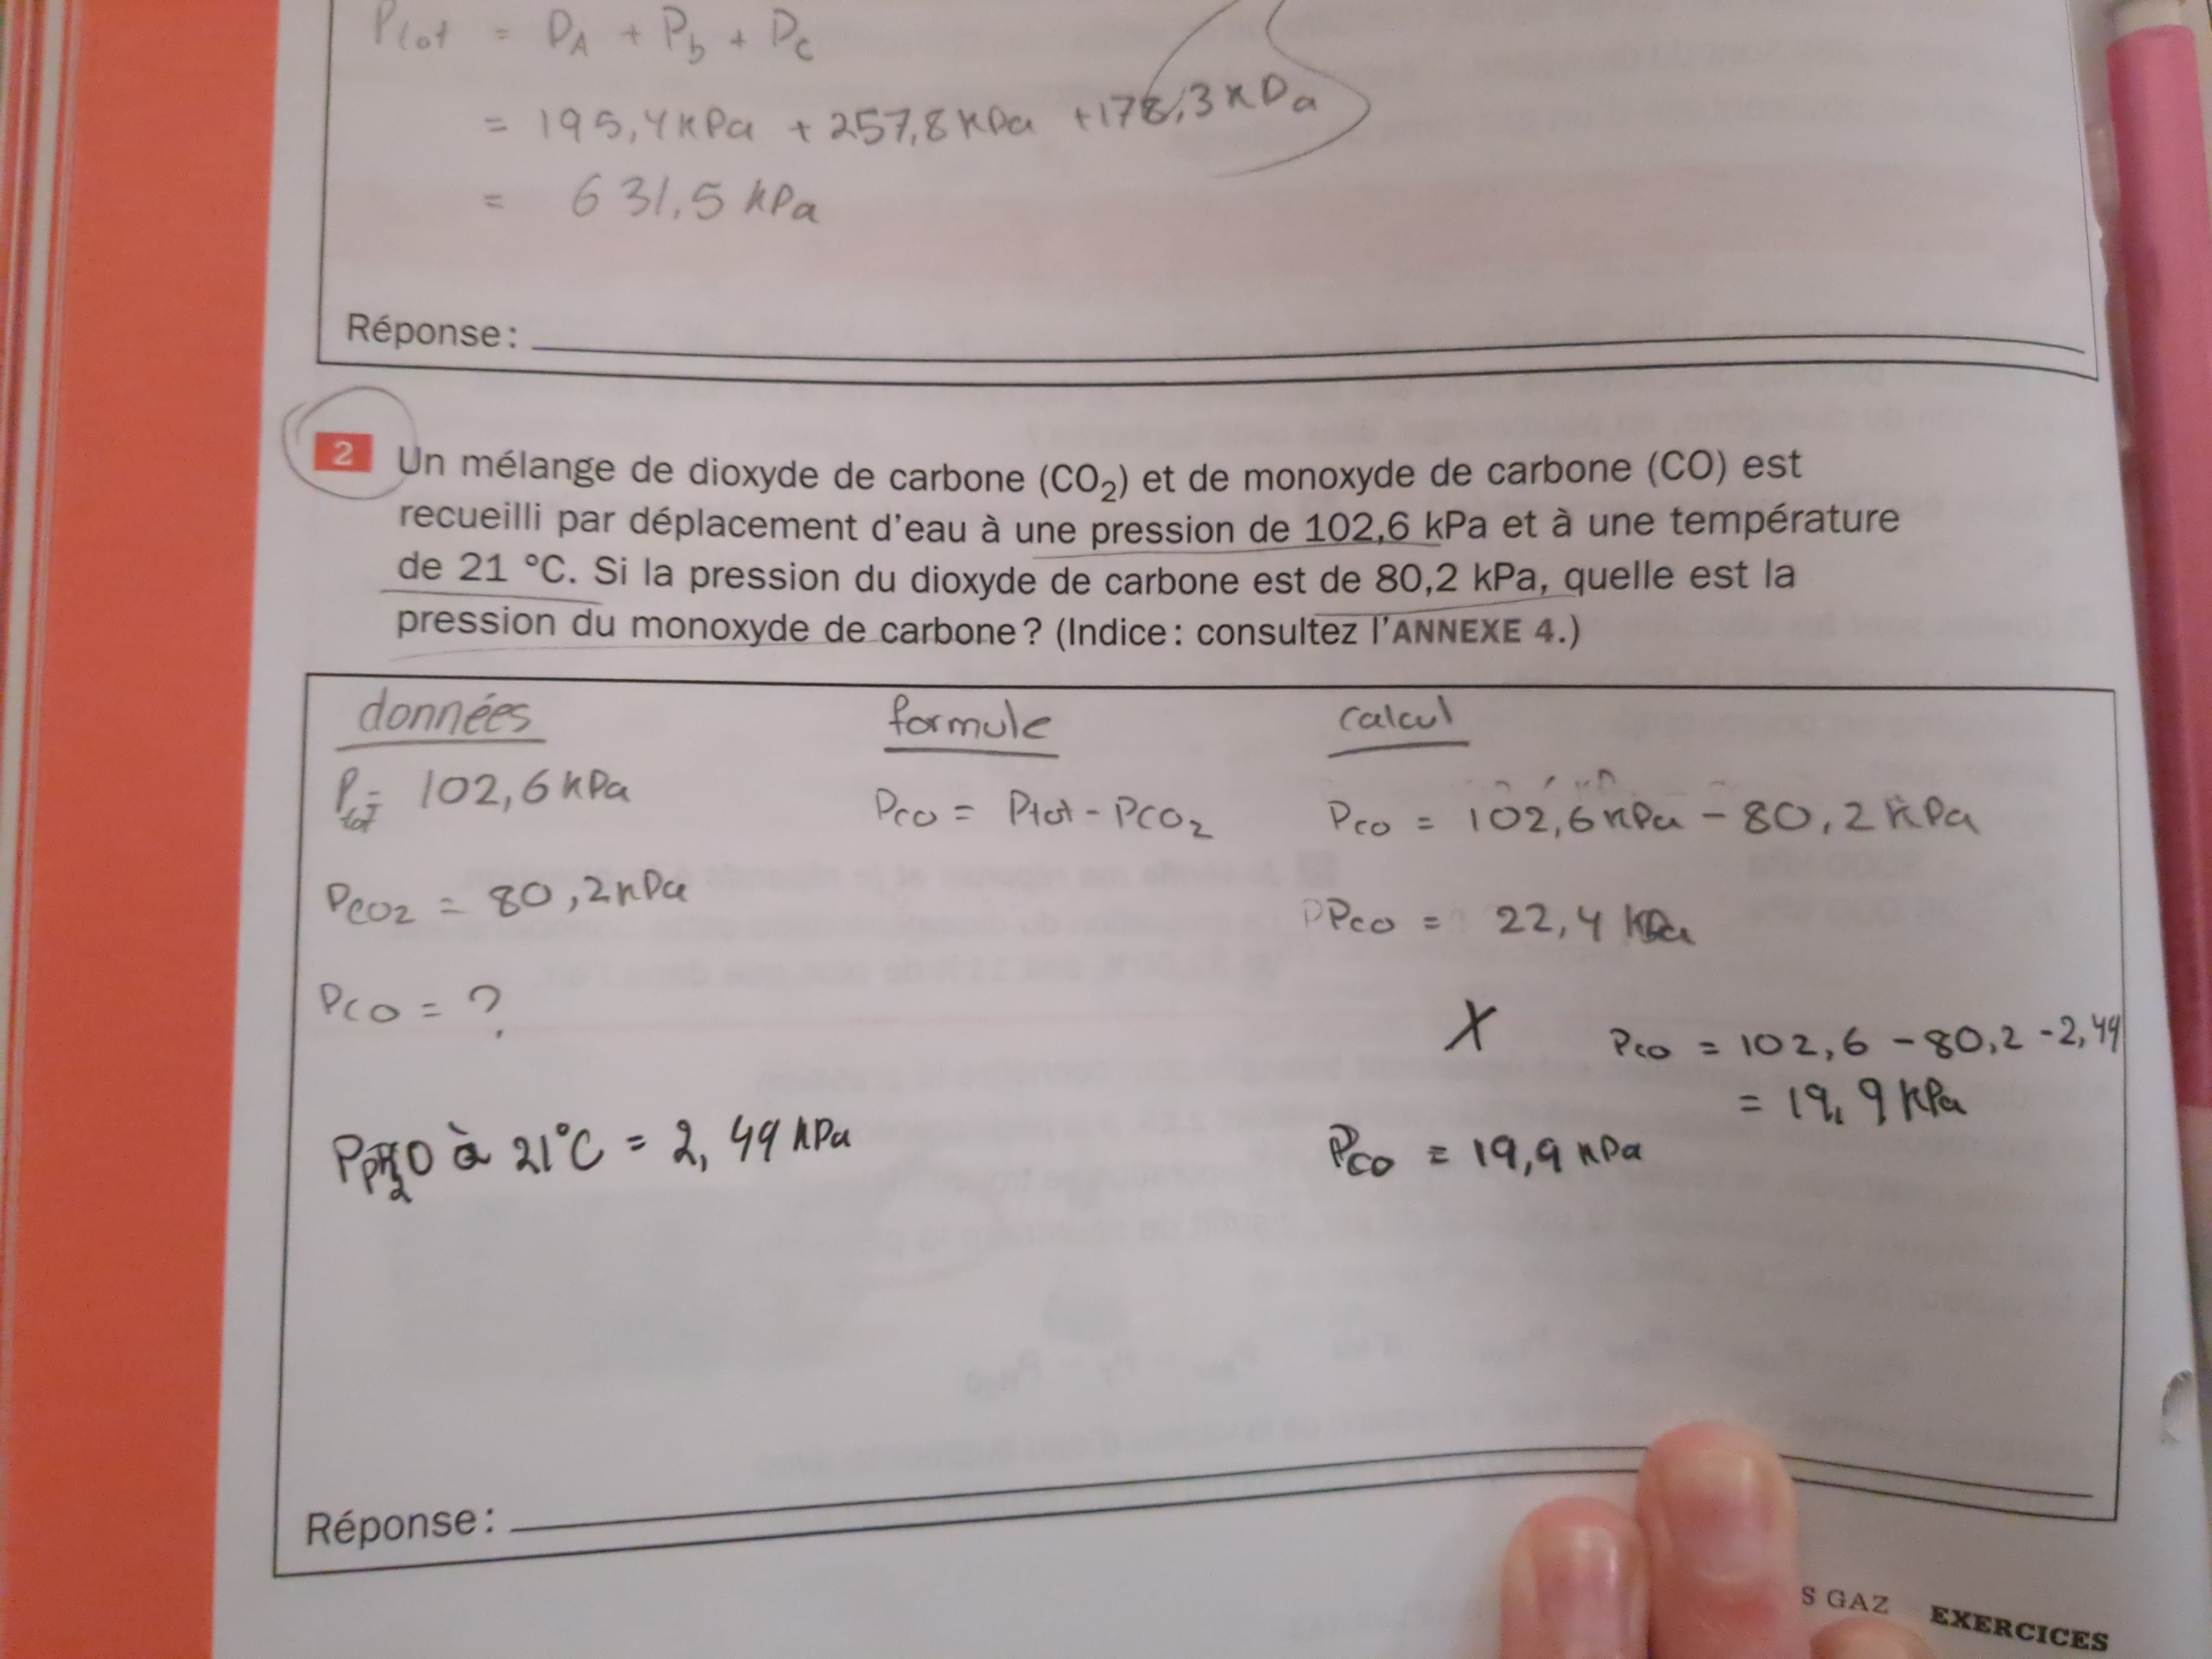 Ptot = PA + Pb + Pc
= 195,4 kPa + 257,8 kPa + 178,3 kPa
= 631,5 kPa
Réponse :
2 Un mélange de dioxyde de carbone (CO₂) et de monoxyde de carbone (CO) est
recueilli par déplacement d'eau à une pression de 102,6 kPa et à une température
de 21 °C. Si la pression du dioxyde de carbone est de 80,2 kPa, quelle est la
pression du monoxyde de carbone ? (Indice : consultez l'ANNEXE 4.)
données formule calcul
Ptot = 102,6 kPa PCO = Ptot - PCO₂ PCO = 102,6 kPa - 80,2 kPa
PCO₂ = 80,2 kPa PPCO = 22,4 kPa
PCO = ?
X PCO = 102,6 - 80,2 - 2,49
= 19,9 kPa
à 21°C = 2,49 kPa PCO = 19,9 kPa
Réponse :
S GAZ EXERCICES